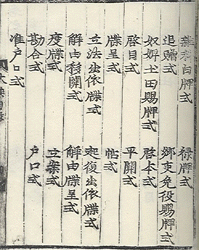 雜科白牌式 祿牌式
追贈式 鄕吏免役賜牌式
奴婢土田賜牌式 啓本式
啓目式 平關式
牒呈式 帖式
立法出依牒式 起復出依牒式
解由移關式 解由牒呈式
度牒式 立案式
勘合式 戶口式
准戶口式